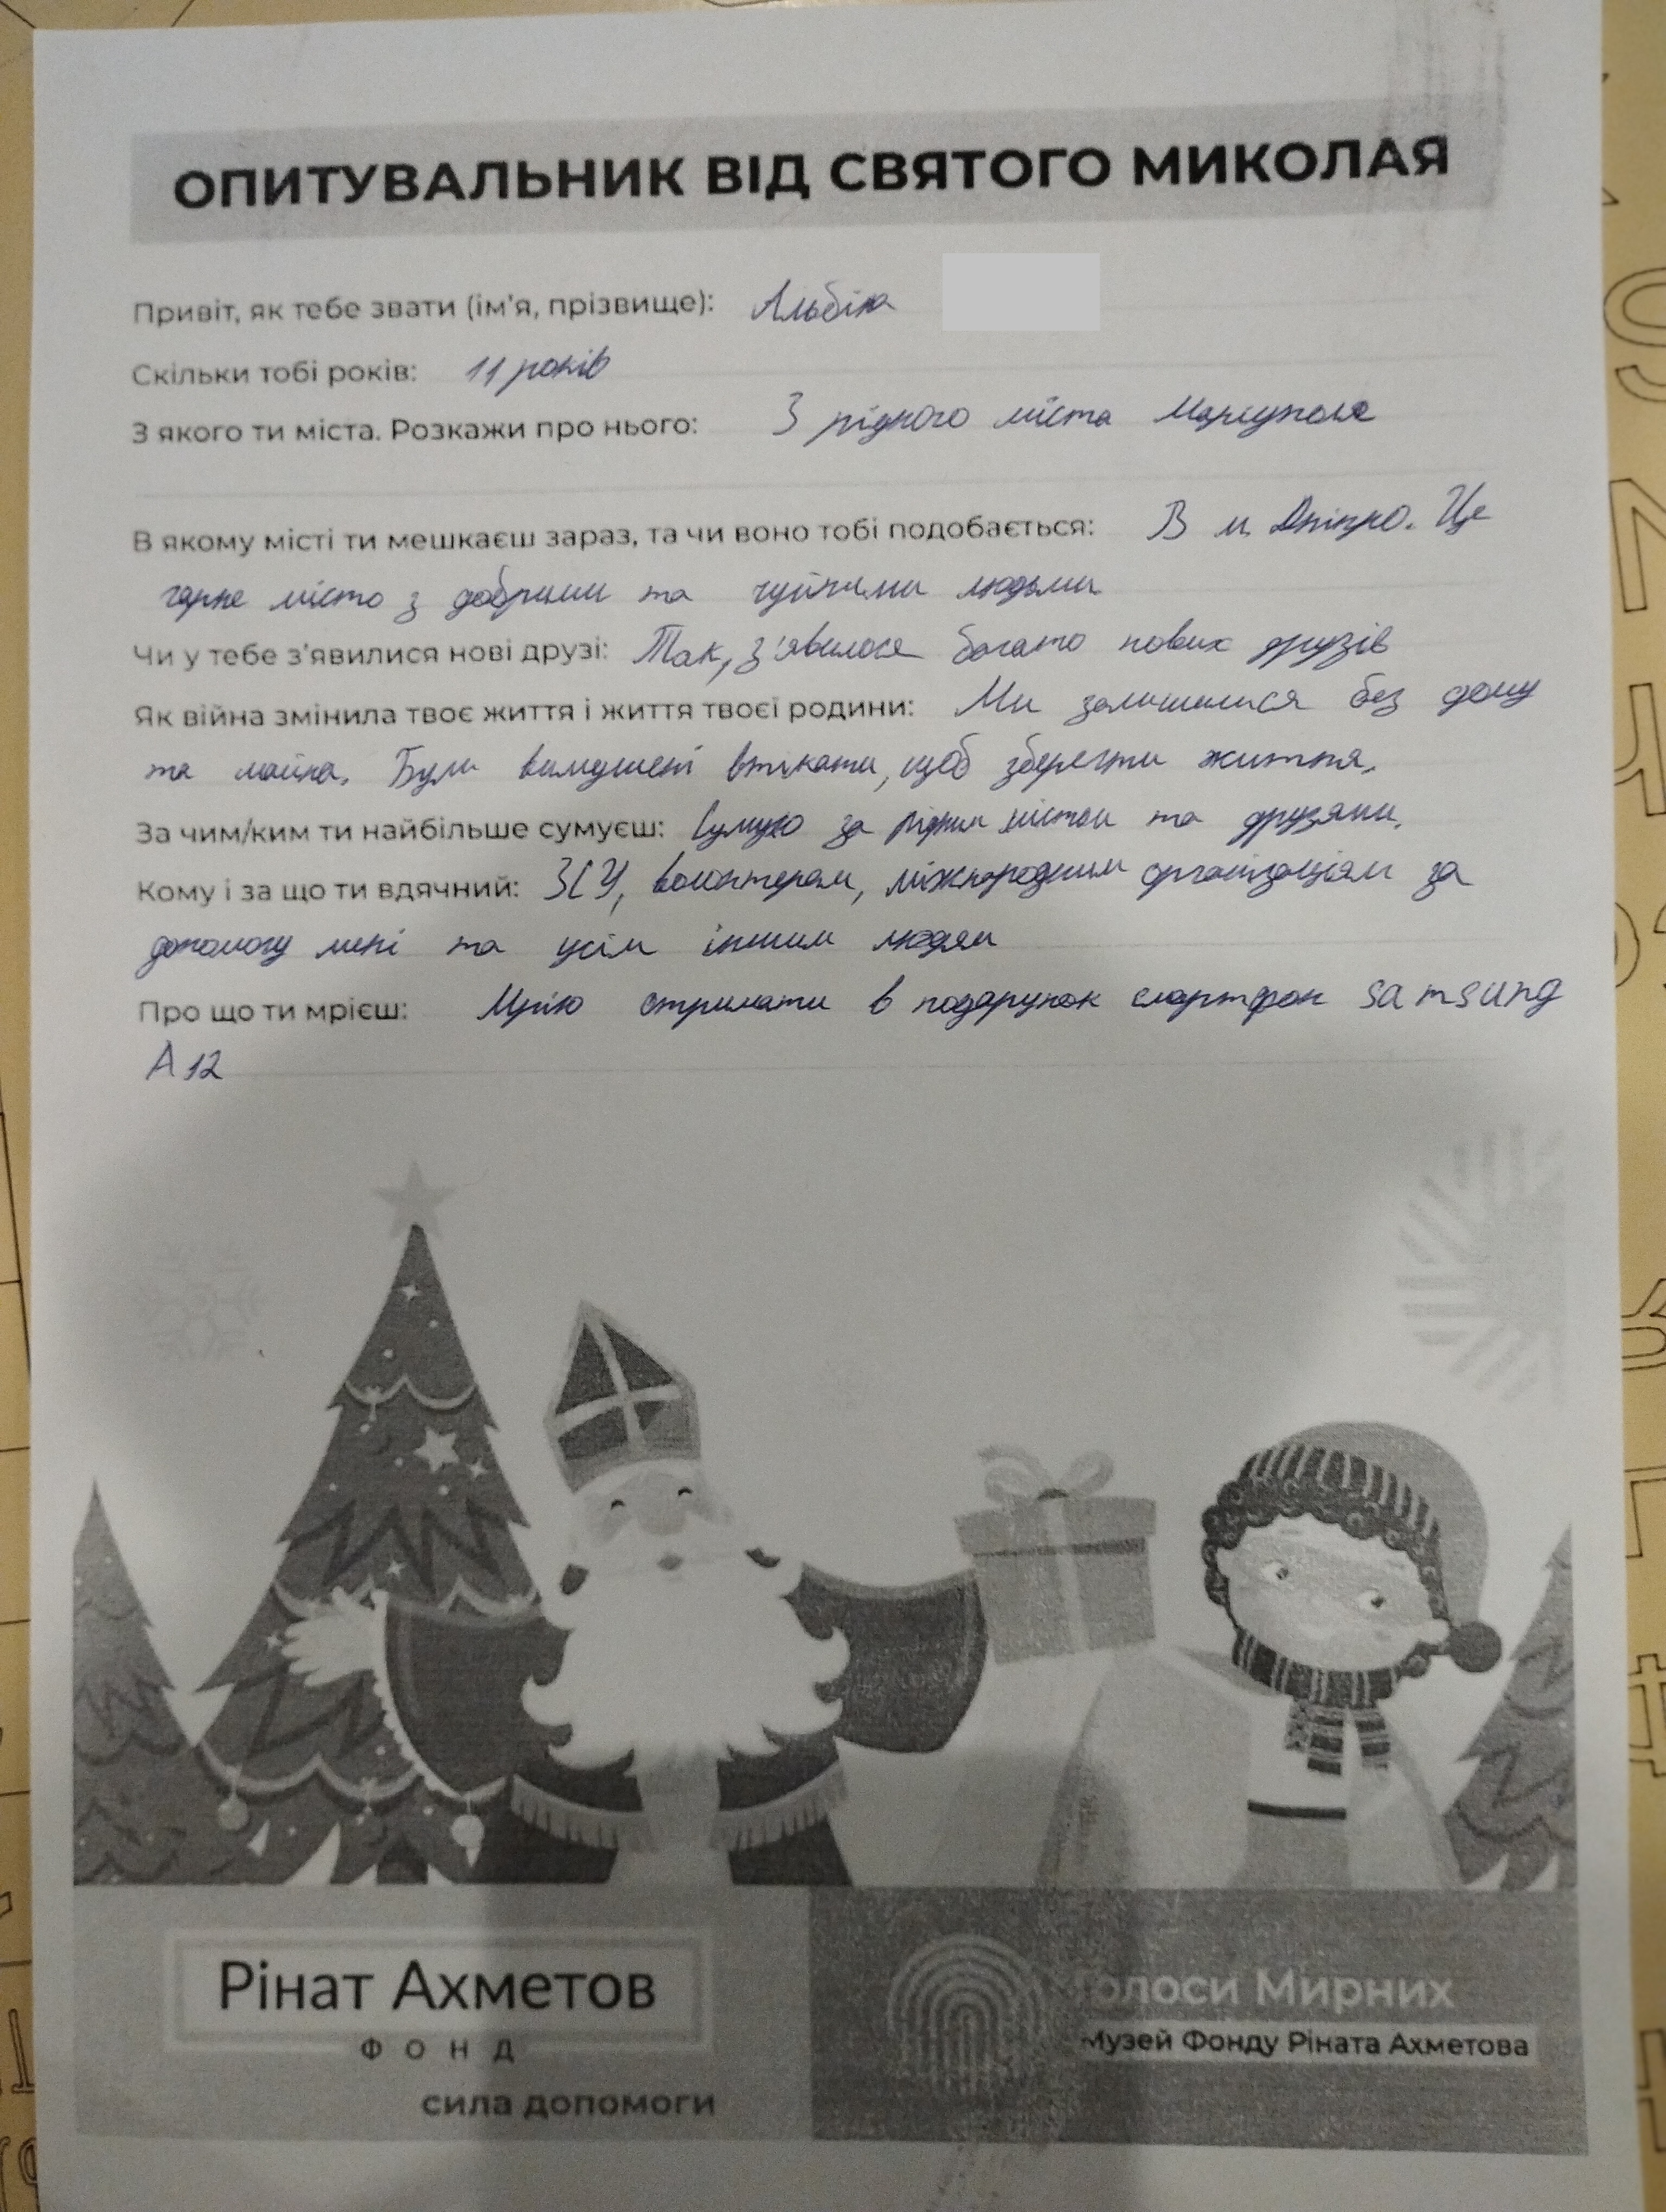 ОПИТУВАЛЬНИК ВІД СВЯТОГО МИКОЛАЯ
Привіт, як тебе звати (ім'я, прізвище): Альбіна
Скільки тобі років: 11 років
З якого ти міста. Розкажи про нього: З рідного міста Маріуполя
В якому місті ти мешкаєш зараз, та чи воно тобі подобається: В м. Дніпро. Це
гарне місто з добрими та чуйними людьми
Чи у тебе з'явилися нові друзі: Так, з'явилося багато нових друзів
Як війна змінила твоє життя і життя твоєї родини: Ми залишилися без дому
та майна. Були вимушені втікати, щоб зберегти життя.
За чим/ким ти найбільше сумуєш: Сумую за рідним містом та друзями.
Кому і за що ти вдячний: ЗСУ, волонтерам, міжнародним організаціям за
допомогу мені та усім іншим людям
Про що ти мрієш: Мрію отримати в подарунок смартфон samsung
A 12
Рінат Ахметов
ФОНД
сила допомоги
Голоси Мирних
Музей Фонду Ріната Ахметова